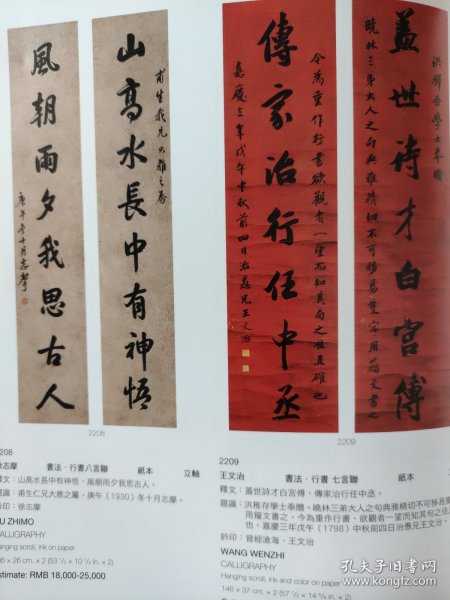 山高水長中有神悟
甫生我兄大雅之屬
風朝雨夕我思古人
庚午冬十月志摩
蓋世詩才白宮傅
傳家治行任中丞
嘉慶三年戊午中秋前四日治愚兄王文治
2208
2209
208
徐志摩 書法·行書八言聯 紙本 立軸
釋文：山高水長中有神悟，風朝雨夕我思古人。
題識：甫生仁兄大雅之屬。庚午（1930）冬十月志摩。
鈐印：徐志摩
U ZHIMO
CALLIGRAPHY
Hanging scroll, ink on paper
stimate: RMB 18,000-25,000
2209
王文治 書法·行書 七言聯 紙本
釋文：蓋世詩才白宮傅，傳家治行任中丞。
題識：洪稚存學士奉贈，曉林三弟大人之句典雅精切不可移易
用籀文書之。今為重作行書，欲觀者一望而知其句之佳
也。嘉慶三年戊午（1798）中秋前四日治愚兄王文治。
鈐印：曾經滄海、王文治
WANG WENZHI
CALLIGRAPHY
Hanging scroll, ink and color on paper
146 × 37 cm. × 2 (57 ½ × 14 ½ in. × 2)
孔夫子旧书网